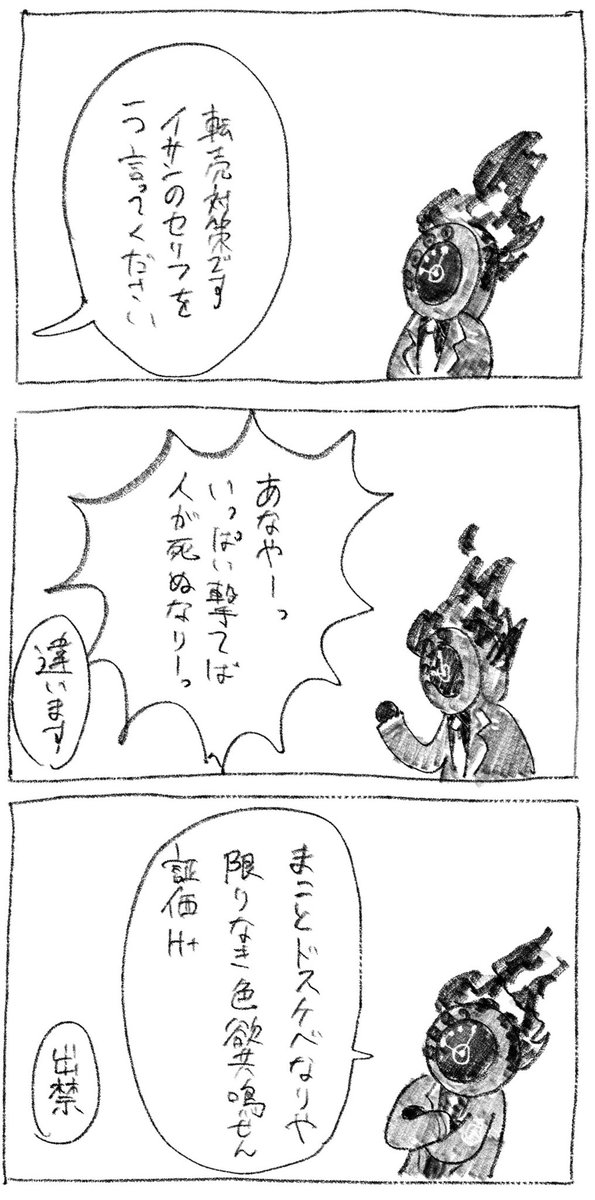 転売対策です
イサンのセリフを
一つ言ってください
あなやーっ
いっぱい撃てば
人が死ぬなりーっ
違います
まことドスケベなりや
限りなき色欲共鳴せん
証価H+
出禁